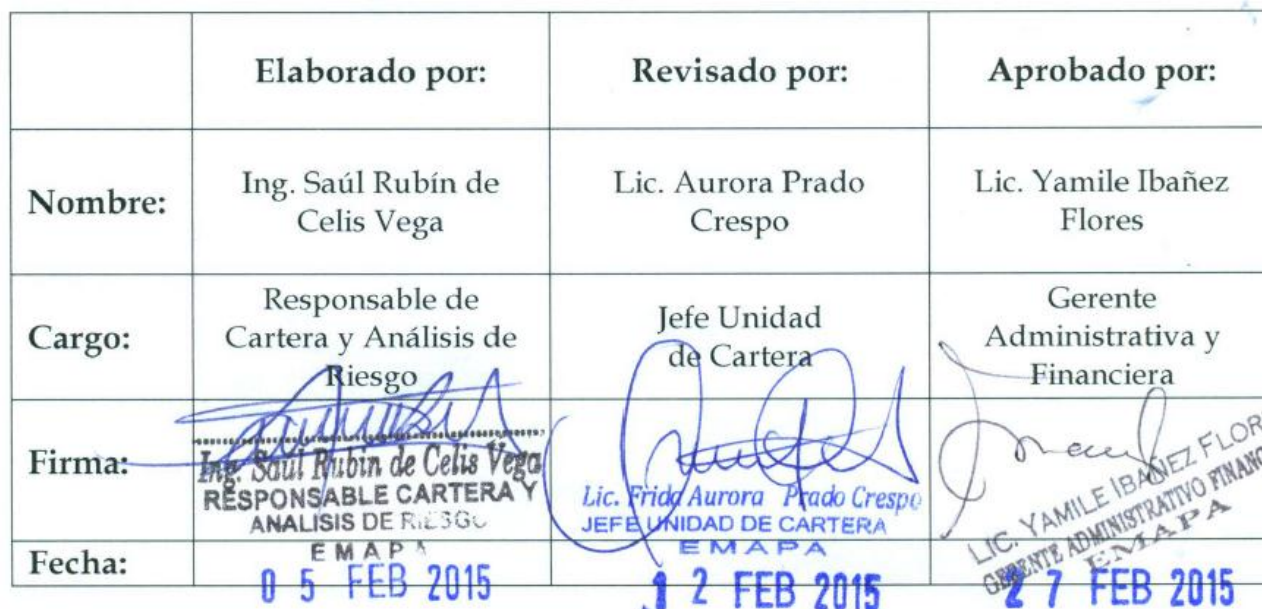 Elaborado por: Revisado por: Aprobado por:
Nombre:
Ing. Saúl Rubín de
Celis Vega
Lic. Aurora Prado
Crespo
Lic. Yamile Ibañez
Flores
Cargo:
Responsable de
Cartera y Análisis de
Riesgo
Jefe Unidad
de Cartera
Gerente
Administrativa y
Financiera
Firma:
Ing. Saúl Rubin de Celis Vega
RESPONSABLE CARTERA Y
ANALISIS DE RIESGO
EMAPA
Lic. Frida Aurora Prado Crespo
JEFE UNIDAD DE CARTERA
EMAPA
LIC. YAMILE IBAÑEZ FLOR
GERENTE ADMINISTRATIVO FINANC
EMAPA
Fecha:
05 FEB 2015
12 FEB 2015
27 FEB 2015